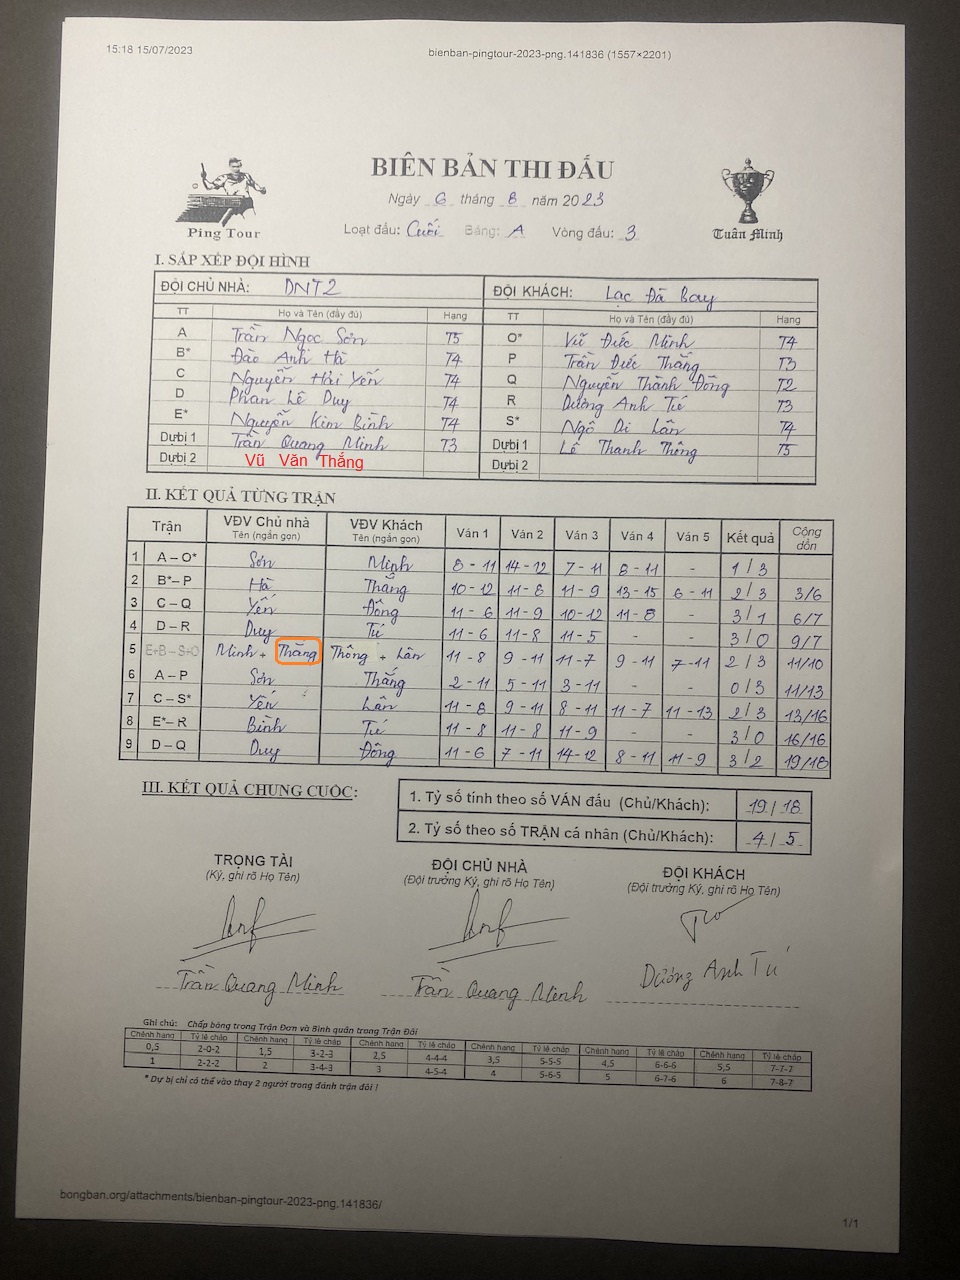 15:18 15/07/2023
bienban-pingtour-2023-png.141836 (1557×2201)
BIÊN BẢN THI ĐẤU
Ngày 6 tháng 8 năm 2023
Loạt đấu: Cuối Bảng: A Vòng đấu: 3
Ping Tour
Tuân Minh
I. SẮP XẾP ĐỘI HÌNH
ĐỘI CHỦ NHÀ: DNT2 ĐỘI KHÁCH: Lạc Đà Bay
TT Họ và Tên (đầy đủ) Hạng TT Họ và Tên (đầy đủ) Hạng
A Trần Ngọc Sơn T5 O* Vũ Đức Minh T4
B* Đào Anh Hà T4 P Trần Đức Thắng T3
C Nguyễn Hải Yến T4 Q Nguyễn Thành Đông T2
D Phan Lê Duy T4 R Dương Anh Tú T3
E* Nguyễn Kim Bình T4 S* Ngô Di Lân T4
Dự bị 1 Trần Quang Minh T3 Dự bị 1 Lê Thanh Thông T5
Dự bị 2 Vũ Văn Thắng Dự bị 2
II. KẾT QUẢ TỪNG TRẬN
Trận VĐV Chủ nhà Tên (ngắn gọn) VĐV Khách Tên (ngắn gọn) Ván 1 Ván 2 Ván 3 Ván 4 Ván 5 Kết quả Cộng dồn
1 A – O* Sơn Minh 8 - 11 14 - 12 7 - 11 8 - 11 - 1 / 3
2 B* – P Hà Thắng 10 - 12 11 - 8 11 - 9 13 - 15 6 - 11 2 / 3 3/6
3 C – Q Yến Đông 11 - 6 11 - 9 10 - 12 11 - 8 - 3 / 1 6/7
4 D – R Duy Tú 11 - 6 11 - 8 11 - 5 - - 3 / 0 9/7
5 E+B – S+O Minh + Thắng Thông + Lân 11 - 8 9 - 11 11 - 7 9 - 11 7 - 11 2 / 3 11/10
6 A – P Sơn Thắng 2 - 11 5 - 11 3 - 11 - - 0 / 3 11/13
7 C – S* Yến Lân 11 - 8 9 - 11 8 - 11 11 - 7 11 - 13 2 / 3 13/16
8 E* – R Bình Tú 11 - 8 11 - 8 11 - 9 - - 3 / 0 16/16
9 D – Q Duy Đông 11 - 6 7 - 11 14 - 12 8 - 11 11 - 9 3 / 2 19/18
III. KẾT QUẢ CHUNG CUỘC:
1. Tỷ số tính theo số VÁN đấu (Chủ/Khách): 19 / 18
2. Tỷ số theo số TRẬN cá nhân (Chủ/Khách): 4 / 5
TRỌNG TÀI ĐỘI CHỦ NHÀ ĐỘI KHÁCH
(Ký, ghi rõ Họ Tên) (Đội trưởng Ký, ghi rõ Họ Tên) (Đội trưởng Ký, ghi rõ Họ Tên)
Trần Quang Minh Trần Quang Minh Dương Anh Tú
Ghi chú: Chấp bảng trong Trận Đơn và Bình quân trong Trận Đôi
Chênh hạng Tỷ lệ chấp Chênh hạng Tỷ lệ chấp Chênh hạng Tỷ lệ chấp Chênh hạng Tỷ lệ chấp Chênh hạng Tỷ lệ chấp Chênh hạng Tỷ lệ chấp
0,5 2-0-2 1,5 3-2-3 2,5 4-4-4 3,5 5-5-5 4,5 6-6-6 5,5 7-7-7
1 2-2-2 2 3-4-3 3 4-5-4 4 5-6-5 5 6-7-6 6 7-8-7
* Dự bị chỉ có thể vào thay 2 người trong đánh trận đôi !
bongban.org/attachments/bienban-pingtour-2023-png.141836/
1/1